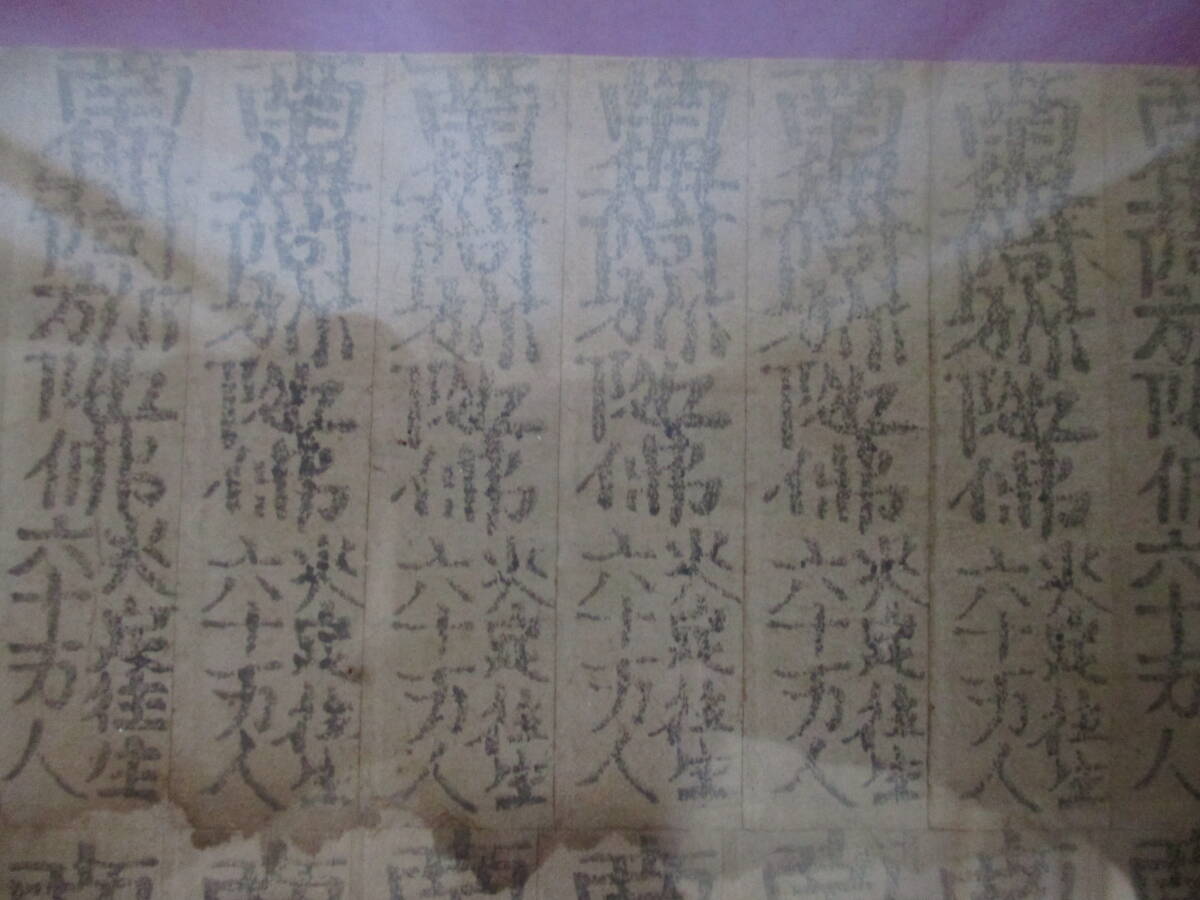 六十万人
南無阿弥陀佛
決定往生
六十万人
南無阿弥陀佛
決定往生
六十万人
南無阿弥陀佛
決定往生
六十万人
南無阿弥陀佛
決定往生
六十万人
南無阿弥陀佛
決定往生
六十万人
南無阿弥陀佛
決定往生
六十万人
南
南
南
南
南
南